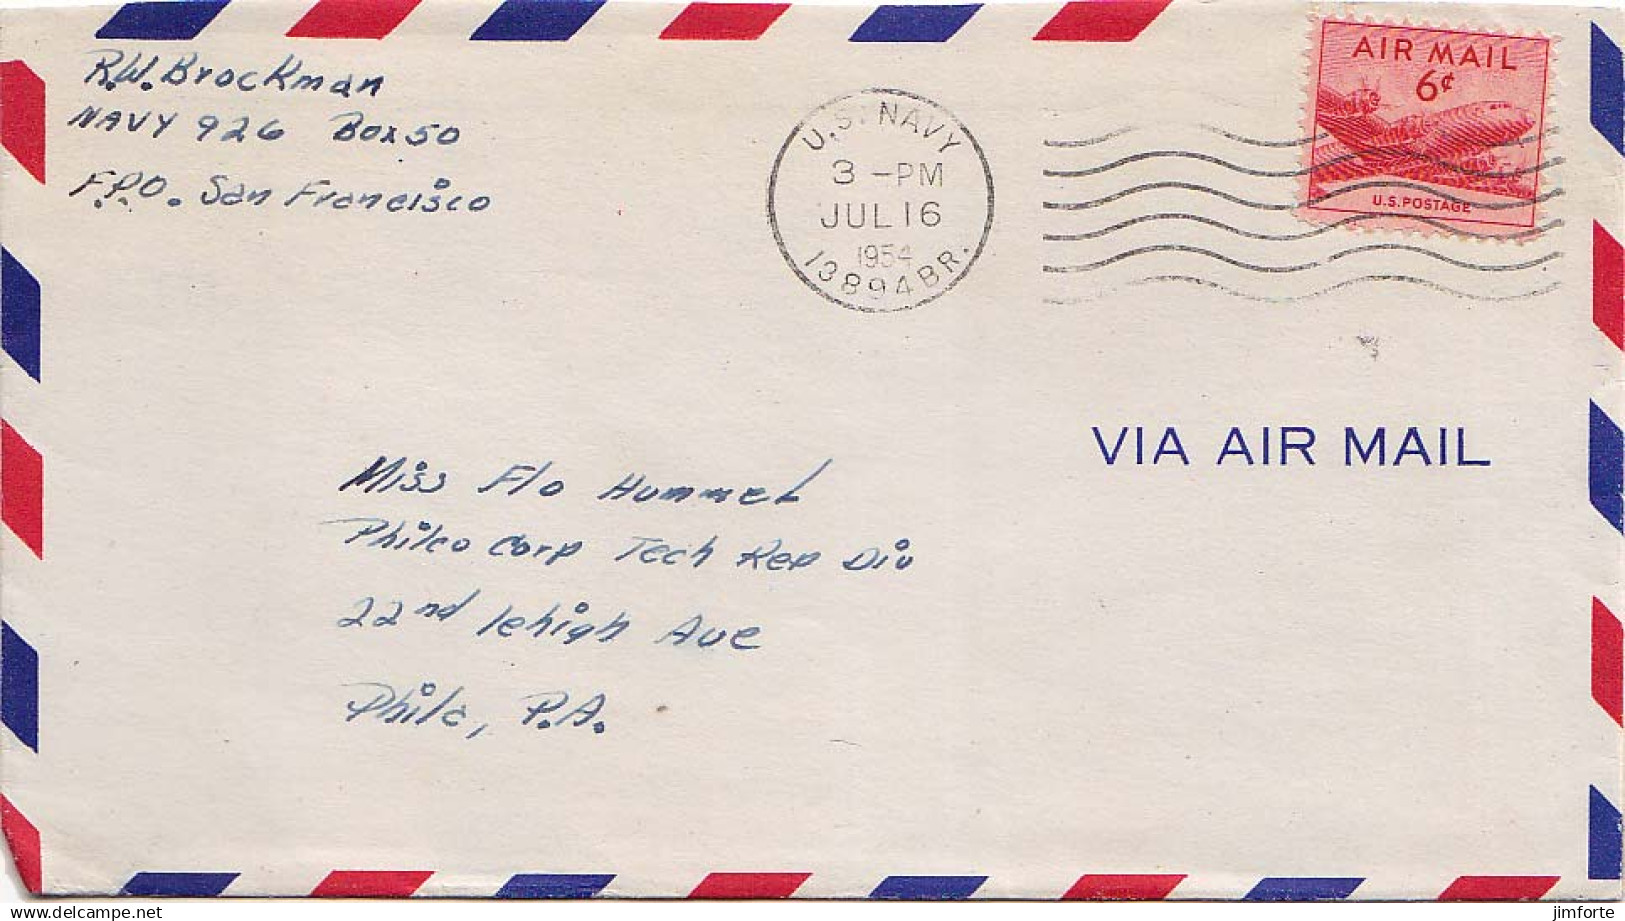 R.W. Brockman
NAVY 926 Box 50
F.P.O. San Francisco
U.S. NAVY
3 - PM
JUL 16
1954
13894 BR.
AIR MAIL
6¢
U.S. POSTAGE
VIA AIR MAIL
Miss Flo Hummel
Philco Corp Tech Rep Div
22nd Lehigh Ave
Phila, P.A.
jimforte